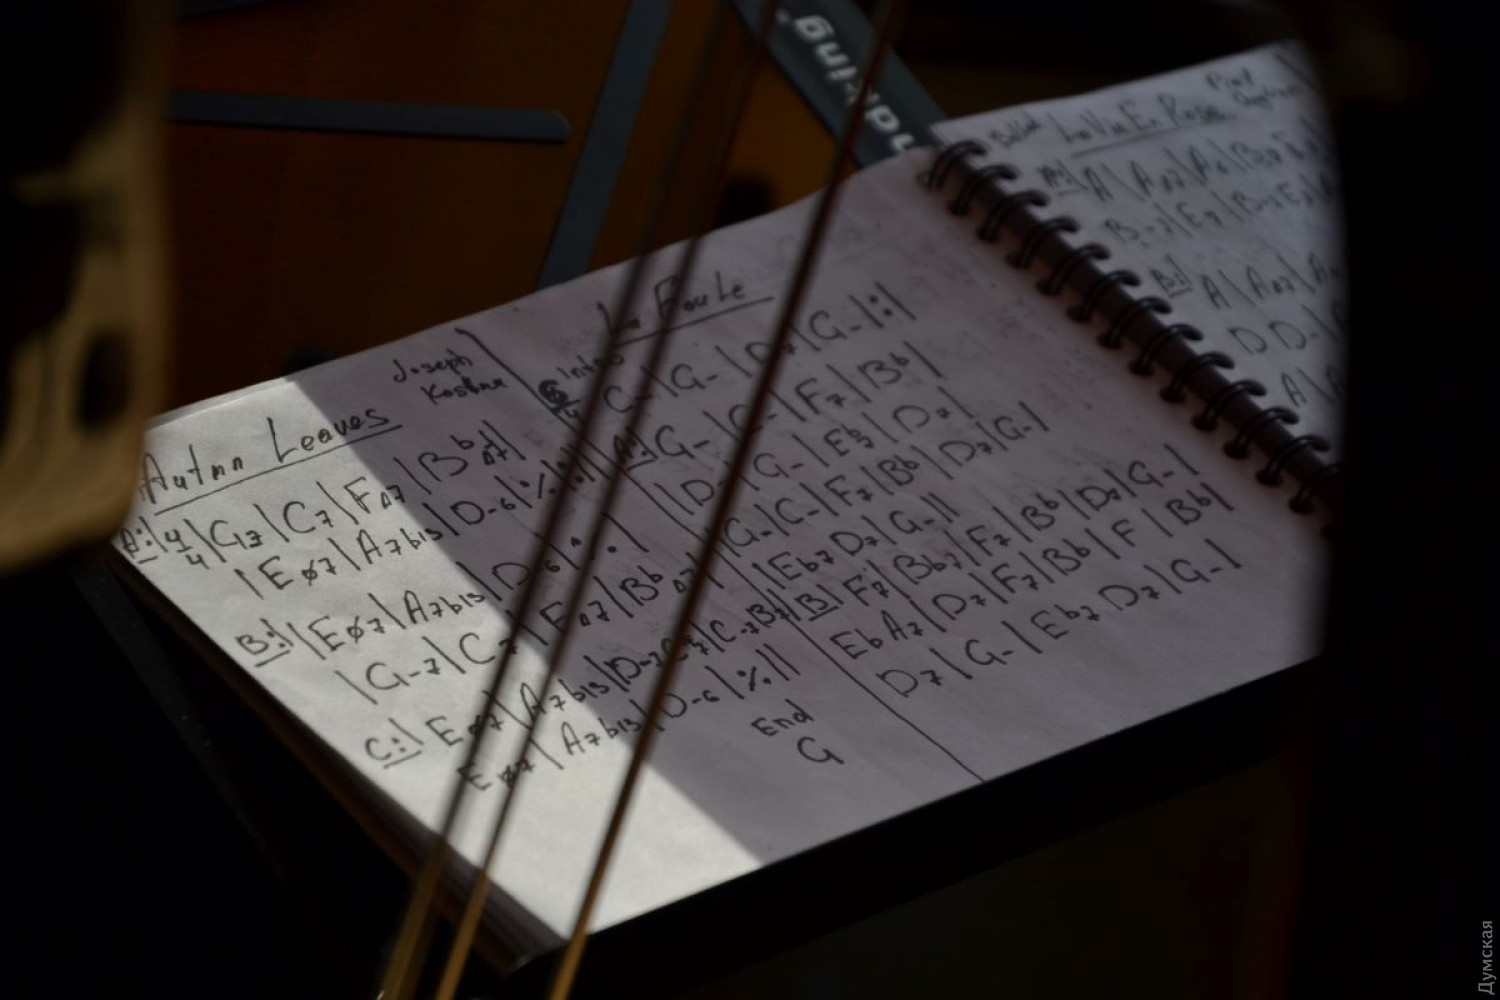 Autmn Leaves
Joseph
Kosma
A:| 4/4 | G-7 | C7 | FΔ7 | Bb Δ7 |
| Eø7 | A7b13 | D-6 | % :||
B:| | Eø7 | A7b13 | D-6 | % |
| G-7 | C7 | FΔ7 | Bb Δ7 |
C:| Eø7 | A7b13 | D-7 | C-7
Eø7 | A7b13 | D-6 | % ||
End
G
La Foule
Intro
C- | G- | D7 | G- | :|
A:| G- | C- | F7 | Bb |
| D7 | G- | Eb7 | D7 |
G- | C- | F7 | Bb | D7 | G- |
| Eb7 D7 | G- ||
B| F7 | Bb7 | F7 | Bb | D7 | G- |
Eb A7 | D7 | F7 | Bb | F | Bb |
D7 | G- | Eb7 D7 | G- |
Ballad
La Vie En Rose
Piaf
A:| A | AΔ7 | A6 | B-7 E7
B-7 | E7 | B-7 E7
B:| A | AΔ7 |
D D- |
A |
Думская